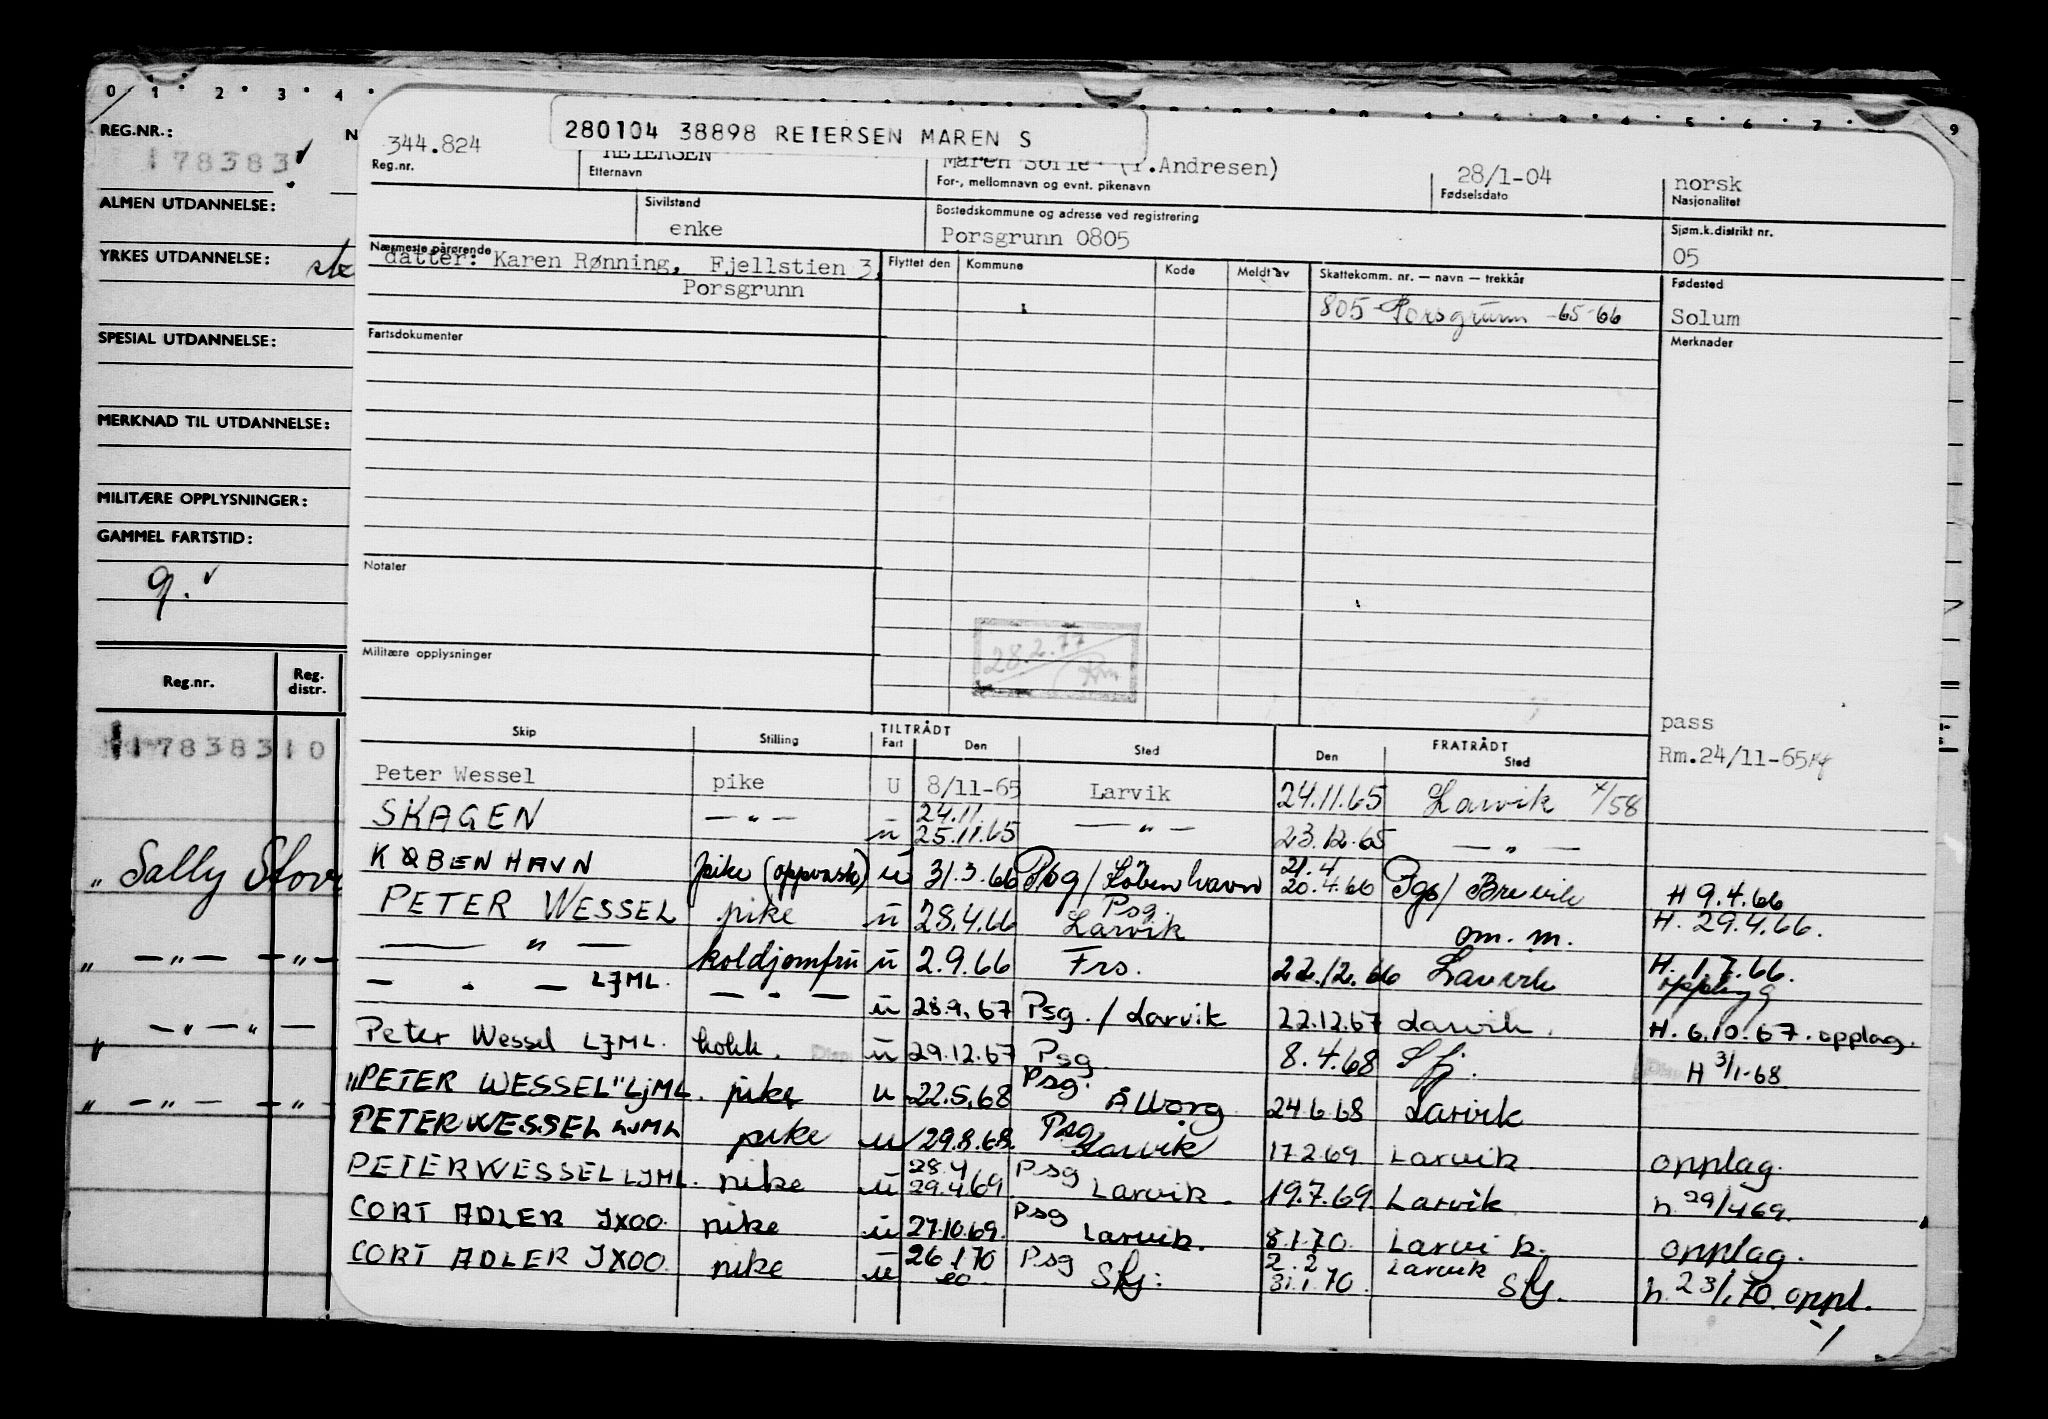 0 1 2 3 4
REG.NR.:
178383
ALMEN UTDANNELSE:
YRKES UTDANNELSE:
SPESIAL UTDANNELSE:
MERKNAD TIL UTDANNELSE:
MILITÆRE OPPLYSNINGER:
GAMMEL FARTSTID:
9.
Reg.nr. Reg. distr.
17838310
" Sally Stove
" — " — — " —
" — " — " —
" — " — — " —
280104 38898 REIERSEN MAREN S
344.824 REIERSEN Maren Sofie (f.Andresen) 28/1-04 norsk
Reg.nr. Etternavn For-, mellomnavn og evnt. pikenavn Fødselsdato Nasjonalitet
Sivilstand Bostedskommune og adresse ved registrering Sjøm.k.distrikt nr.
enke Porsgrunn 0805 05
Nærmeste pårørende Flyttet den Kommune Kode Meldt av Skattekomm. nr. — navn — trekkår Fødested
datter: Karen Rønning, Fjellstien 3,
Porsgrunn 805-Porsgrunn -65-66 Solum
Fartsdokumenter Merknader
Notater
28.2.77
Militære opplysninger
pass
Skip Stilling TILTRÅDT Fart Den Sted FRATRÅDT Den Sted
Rm.24/11-65
Peter Wessel pike U 8/11-65 Larvik 24.11.65 Larvik 4/58
SKAGEN — " — u 24.11 25.11.65 — " — 23.12.65 — " —
KØBENHAVN pike (oppvask) u 31.3.66 Psg/København 21.4 20.4.66 Psg/Brevik H 9.4.66
PETER WESSEL pike u 28.4.66 Psg. Larvik om. m. H. 29.4.66.
— " — koldjomfru u 2.9.66 Frs. 22.12.66 Larvik H. 1.7.66. opplag
— " — LJML. — " — u 28.9.67 Psg./Larvik 22.12.67 Larvik. H. 6.10.67. opplag.
Peter Wessel LJML. kokk. u 29.12.67 Psg 8.4.68 Sfj. H 3/1-68
"PETER WESSEL" LJML. pike u 22.5.68 Psg. Ålborg 24.6.68 Larvik
PETER WESSEL LJML pike u 29.8.68. Psg Larvik 17.2.69 Larvik. opplag.
PETER WESSEL LJML. pike u 28.4 29.4.69 Psg Larvik. 19.7.69 Larvik h. 29/4 69.
CORT ADLER JXOO. pike u 27.10.69. Psg Larvik. 8.1.70. Larvik. opplag.
CORT ADLER JXOO pike u 26.1.70 20. Psg Sfj. 2.2 31.1.70. Larvik Sfj. h. 23/1.70. oppl.